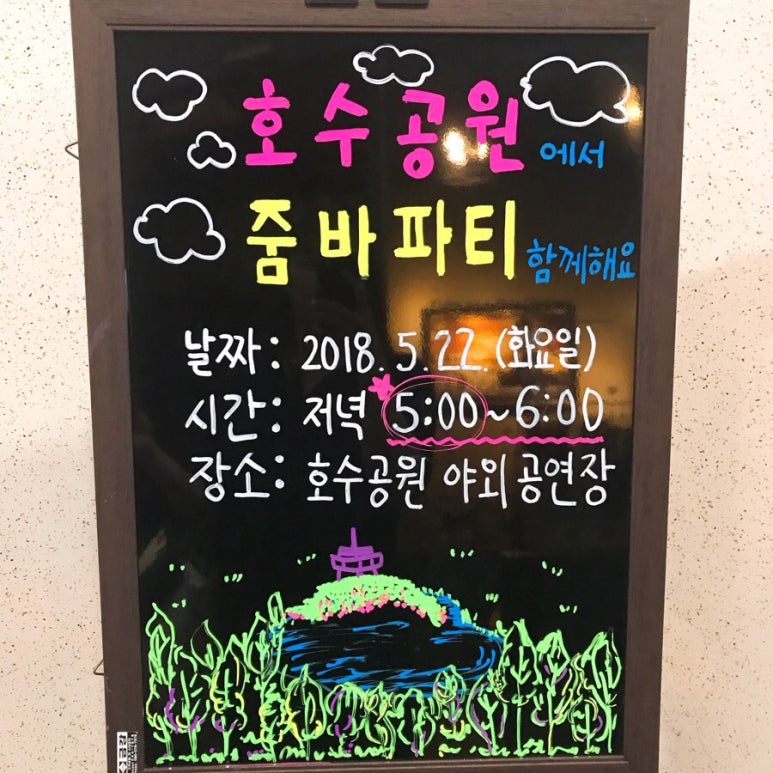 호수공원에서
줌바파티 함께해요
날짜: 2018. 5. 22. (화요일)
시간: 저녁 5:00~6:00
장소: 호수공원 야외공연장